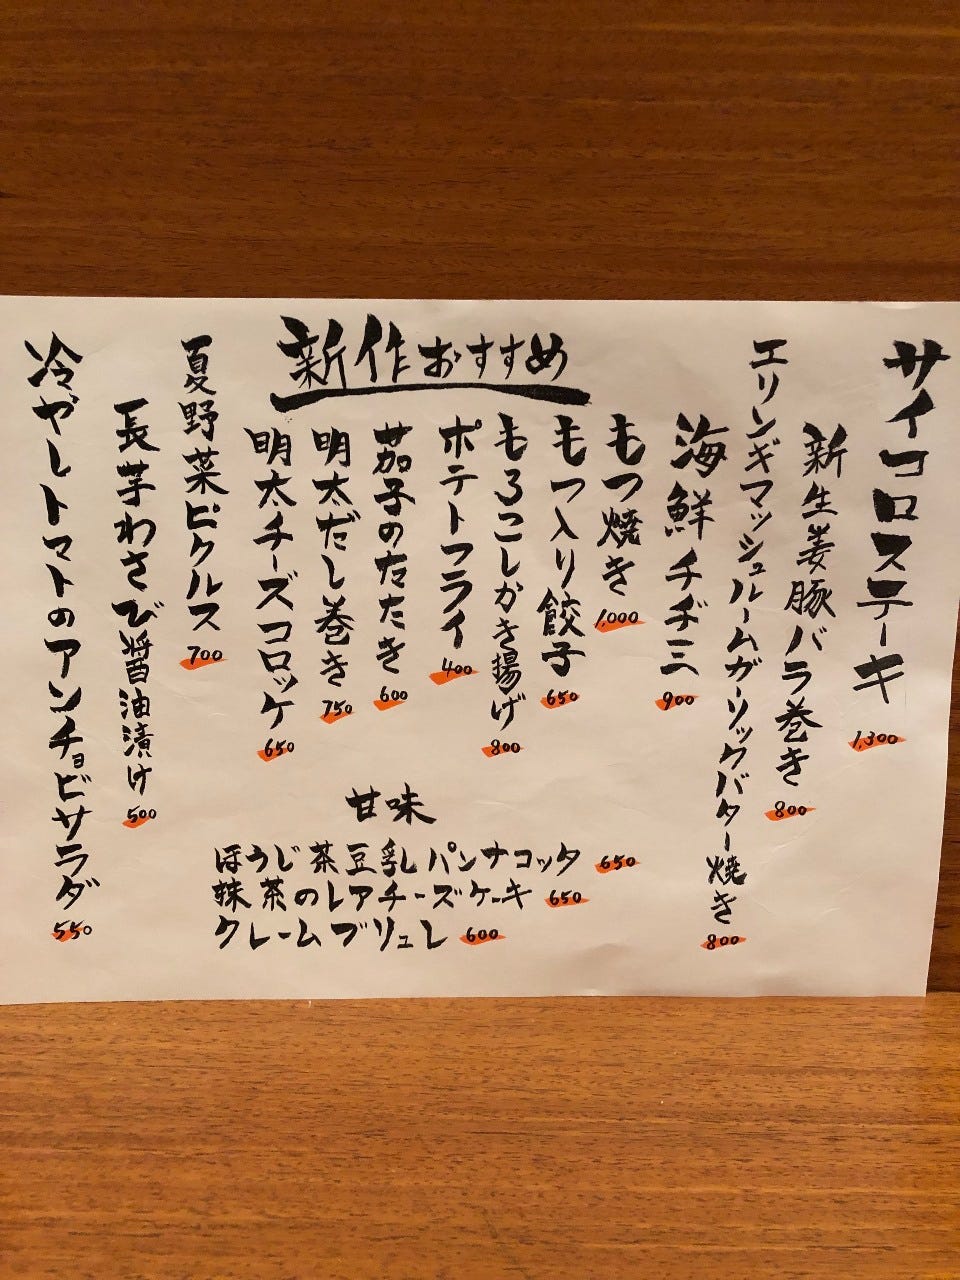 新作おすすめ
サイコロステーキ 1,300
新生姜豚バラ巻き 800
エリンギマッシュルームガーリックバター焼き 800
海鮮チヂミ 900
もつ焼き 1,000
もつ入り餃子 650
もろこしかき揚げ 800
ポテトフライ 400
茄子のたたき 600
明太だし巻き 750
明太チーズコロッケ 650
夏野菜ピクルス 700
長芋わさび醤油漬け 500
冷やしトマトのアンチョビサラダ 550
甘味
ほうじ茶豆乳パンナコッタ 650
抹茶のレアチーズケーキ 650
クレームブリュレ 600